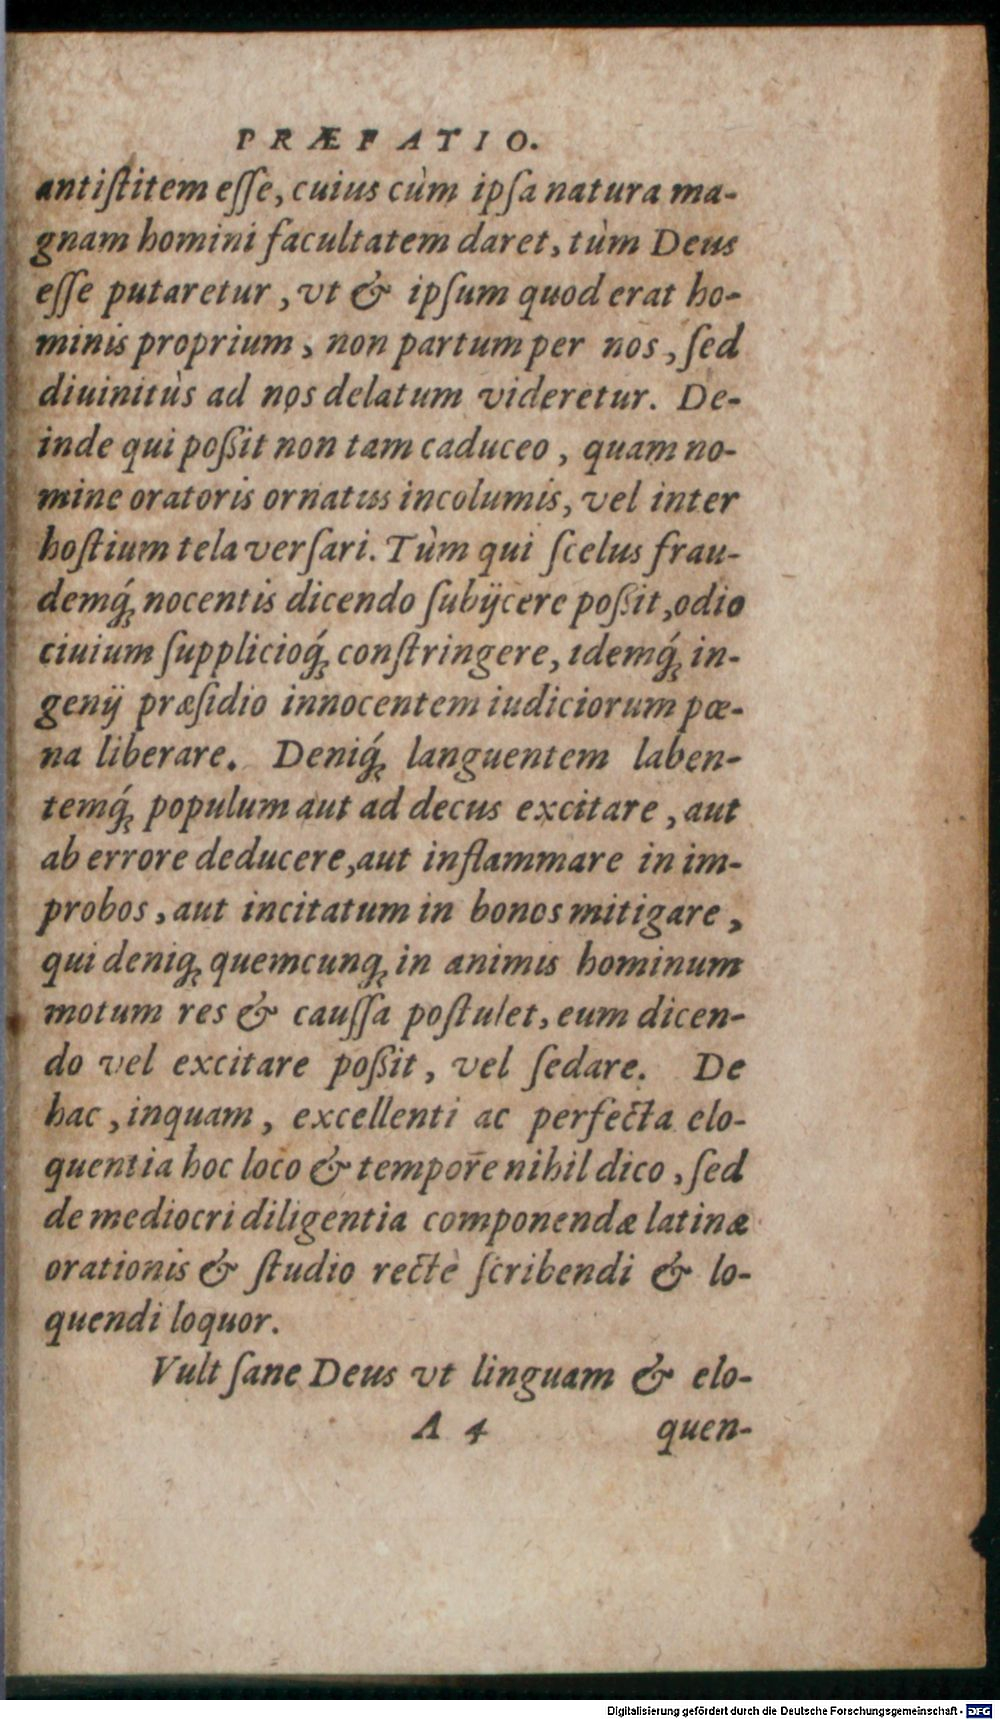 PRÆFATIO.
antiſtitem eſſe, cuius cùm ipſa natura ma-
gnam homini facultatem daret, tùm Deus
eſſe putaretur, vt & ipſum quod erat ho-
minis proprium, non partum per nos, ſed
diuinitùs ad nos delatum videretur. De-
inde qui poßit non tam caduceo, quam no-
mine oratoris ornatus incolumis, vel inter
hoſtium tela verſari. Tùm qui ſcelus frau-
demq́ꝫ nocentis dicendo ſubijcere poßit, odio
ciuium ſupplicioq́ꝫ conſtringere, idemq́ꝫ in-
genij præſidio innocentem iudiciorum pœ-
na liberare. Deniq́ꝫ languentem laben-
temq́ꝫ populum aut ad decus excitare, aut
ab errore deducere, aut inflammare in im-
probos, aut incitatum in bonos mitigare,
qui deniqꝫ quemcunqꝫ in animis hominum
motum res & cauſſa poſtulet, eum dicen-
do vel excitare poßit, vel ſedare. De
hac, inquam, excellenti ac perfecta elo-
quentia hoc loco & tempore nihil dico, ſed
de mediocri diligentia componendæ latinæ
orationis & ſtudio rectè ſcribendi & lo-
quendi loquor.
Vult ſane Deus vt linguam & elo-
A 4 quen-
Digitalisierung gefördert durch die Deutsche Forschungsgemeinschaft - DFG